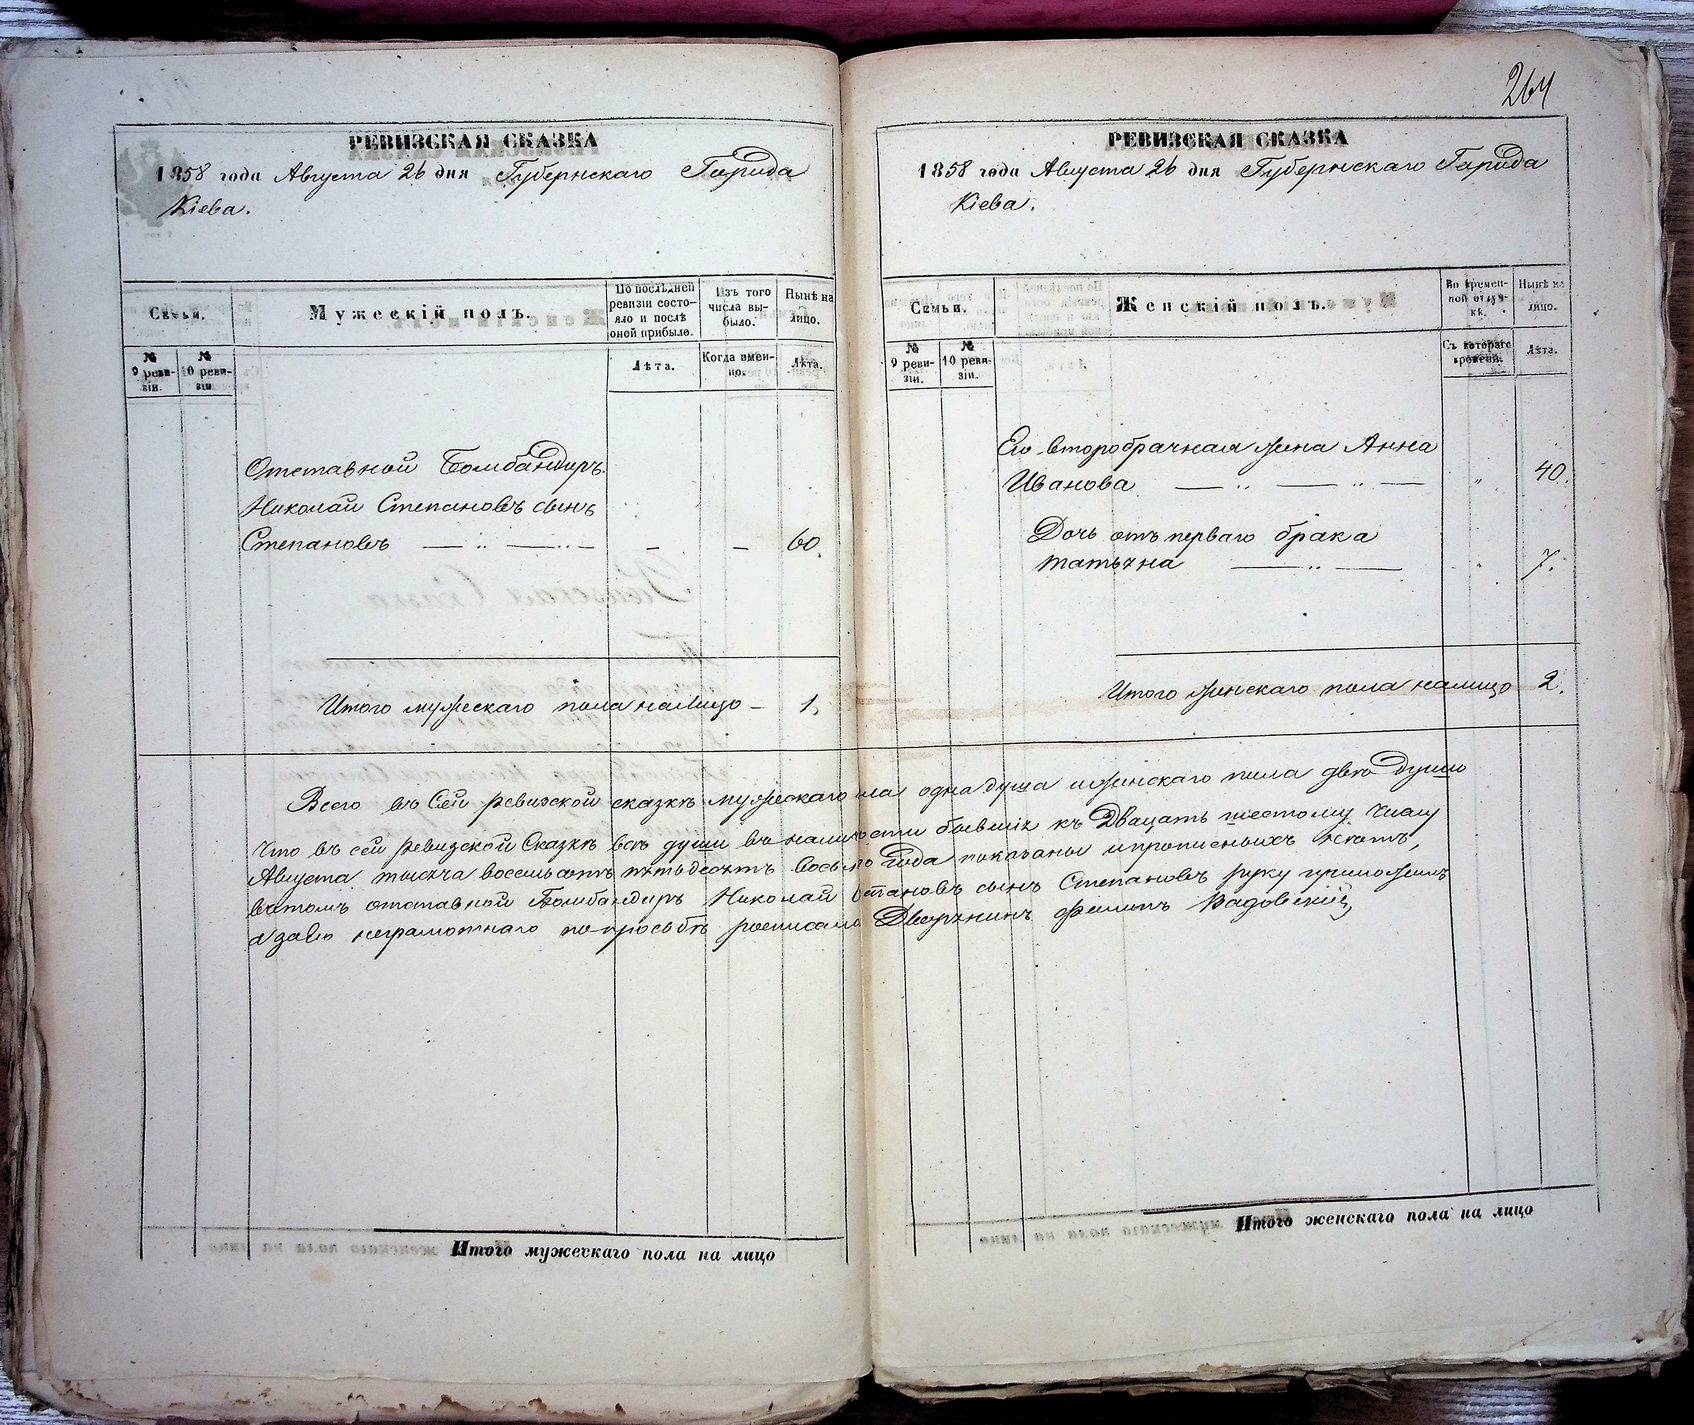 264
РЕВИЗСКАЯ СКАЗКА
1858 года Августа 26 дня Губернскаго Города
Кіева.
Семьи.
Мужескій полъ.
По послѣдней ревизіи состояло и послѣ оной прибыло.
Изъ того числа выбыло.
Нынѣ на лицо.
№ 9 ревизіи.
№ 10 ревизіи
Лѣта.
Когда именно.
Лѣта.
Отставной Бомбандиръ
Николай Степановъ сынъ
Степановъ — „ — „ — – – 60.
Итого мужескаго пола налицо – 1,
РЕВИЗСКАЯ СКАЗКА
1858 года Августа 26 дня Губернскаго Города
Кіева.
Семьи.
Женскій полъ.
Во временной отлучкѣ.
Нынѣ на лицо.
№ 9 ревизіи.
№ 10 ревизіи.
Съ котораго времени.
Лѣта.
Его второбрачная жена Анна
Иванова — „ — „ — „ 40.
Дочь отъ перваго брака
татьяна — „ — „ 7.
Итого женскаго пола налицо 2.
Всего въ сей ревизской сказкѣ мужескаго пола одна душа и женскаго пола двѣ души
Что въ сей ревизской Сказкѣ всѣ души въ наличности бывшіе къ Двацать шестому числу
Августа тысяча восемьсотъ пятьдесятъ восьмого Года показаны и прописныхъ нѣтъ,
въ томъ отставной Бомбандиръ Николай Степановъ сынъ Степановъ руку приложилъ
а за него неграмотнаго по просьбѣ росписался Дворянинъ Филипъ Вадовскій,
Итого мужескаго пола на лицо
Итого женскаго пола на лицо